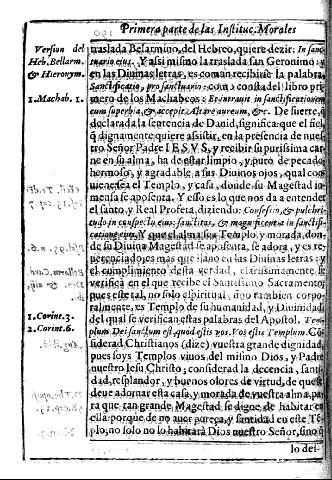 Primera parte de las Instituc. Morales
Version del
Heb. Bellarm.
& Hieronym.
1. Machab. 1.
1. Corint. 3.
2. Corint. 6.
traslada Belarmino, del Hebreo, quiere dezir: In san-
tuario eius. Y assi mismo la traslada san Geronimo: y
en las Diuinas letras, es comun recibirse la palabra,
Sanctificatio, pro sanctuario: como consta del libro pri-
mero de los Machabeos: Et intrauit in sanctificationem
cum superbia, & accepit Altare aureum, &c. De suerte, q̃
declarada la sentencia de Dauid, significa que el fiel
q̃ dignamente quiere assistir, en la presencia de nues-
tro Señor Padre IESVS, y recibir su purissima car-
ne en su alma, ha de estar limpio, y puro de pecado
hermoso, y agradable a sus Diuinos ojos, qual con-
uiene sea el Templo, y casa, donde su Magestad in-
mensa se aposenta. Y esso es lo que nos da a entender
el santo y Real Profeta, diziendo: Confessio, & pulchri-
tudo in conspectu eius: sanctitas, & magnificentia in sanctifi-
catione eius. Y que el alma sea Templo, y morada, don-
de su Diuina Magestad se aposenta, se adora, y es re-
uerenciado, es mas que llano en las Diuinas letras: y
el cumplimiento desta verdad, clarissimamente se
verifica en el que recibe el Santissimo Sacramento,
pues este tal, no solo espiritual, sino tambien corpo-
ralmente, es Templo de su humanidad, y Diuinidad,
del qual se verifican estas palabras del Apostol. Tem-
plum Dei sanctum est, quod estis vos. Vos estis Templum. Co-
siderad Christianos (dize) vuestra grande dignidad,
pues soys Templos viuos del mismo Dios, y Padre
nuestro Iesu Christo; considerad la decencia, santi-
dad, resplandor, y buenos olores de virtud, de que se
deue adornar esta casa, y morada de vuestra alma, pa-
ra que tan grande Magestad se digne de habitar en
ella: porque de no auer pureza, y santidad en este Te-
plo, no solo no lo habitarà Dios nuestro Señor, sino q̃
lo des-